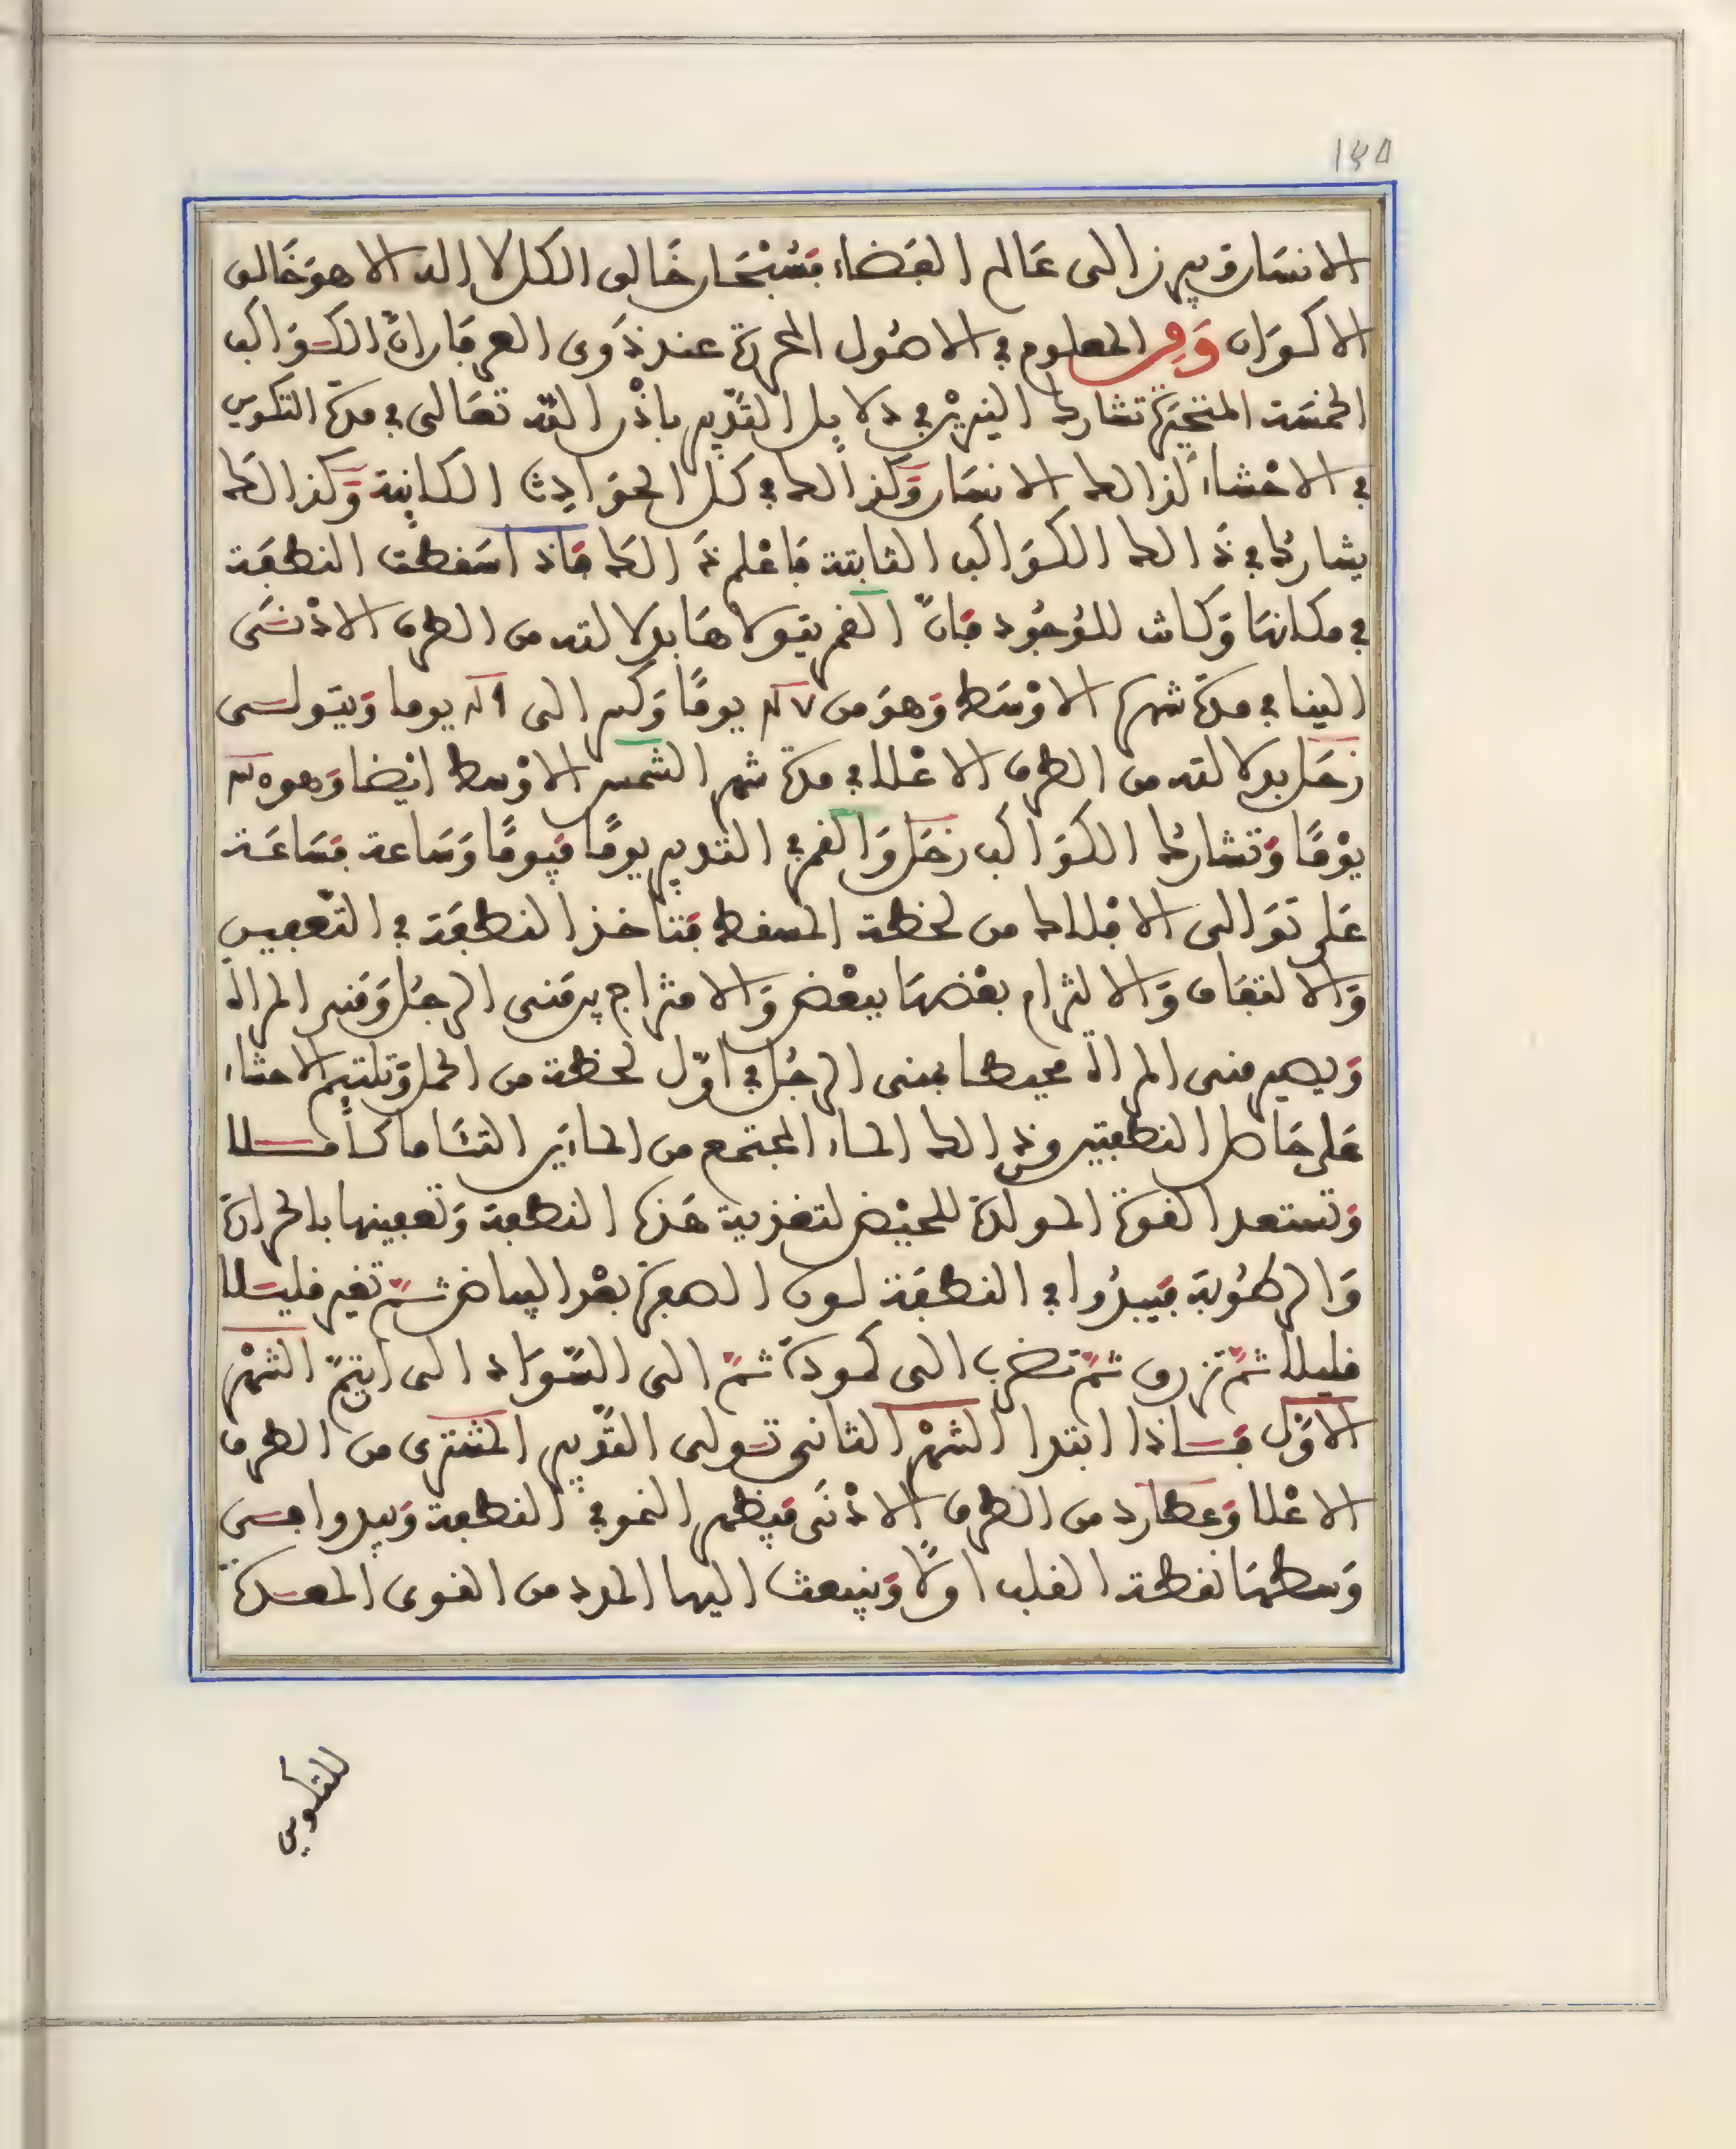 ١٤٥
الانسان ويبرز الى عَالم الفَضاء فَسُبْحَان خَالق الكل لا اله الا هوَ خَالق
الاكوَان وَمِن المعلوم في الاصُول المحررة عند ذَوى العرفان انّ الكَوَاكب
الخمسَة المتحَيّرة تشارك النيريْن في دلايل التَّدبير باذْن اللّه تعَالى في مدة التكوين
في الاحْشاء كذالك الانسَان وَكذالك في كل الحوَادِث الكاينة وَكذالك
يشارك في ذَالك الكوَاكب الثابتة فَاعْلم ذَالك فَاذ اسَقطت النطفَة
في مكانها وَكانت للوُجُود فَانّ القمر يتولاهَا بدلالته من الطرف الادْنَى
الينا في مدة شهره الاوْسَط وَهوَ من ٢٧ يومًا وَكسر الى ٢٩ يوما وَيتولى
زحَل بدلالته من الطرف الاعْلا في مدة شهر الشمس الاوْسط ايْضا وَهو ٣٥
يوْمًا وَتشارك الكوَاكب زحَل وَالقمر في التدبير يومًا فيومًا وَسَاعة فسَاعَة
عَلى توَالى الافلاك من لحظة المسقط فتتاخذ النطفَة في التّعفين
وَالالتفاف وَالالتزام بعْضهَا ببعْض وَالامتزاج بين مَنى الرجُل وَمَنى المراة
وَيصير منى المراة محيطا بمنى الرجُل في اوّل لحظة من الحمل وَتلتيم الاحشاء
عَلى حَاصل النطفتين وَذالك الماء المجتمع من الماءَين التئاما كاملا
وَتستعد القوة المولدة للحيْض لتغذية هَذه النطفة وَتعفينها بالحرارة
وَالرطوُبة فيبدُوا في النطفَة لون الصفرة بعْد البياض ثمّ تغير قليلا
قليلا ثمّ تزرق ثمّ تضرب الى كمودَة ثمّ الى السّوَاد الى ايتمّ الشهْر
الاوّل فاذا ابتدا الشهْر الثانى تولى التدّبير المشترى من الطرف
الاعْلا وَعطارد من الطرف الادْنَى فيَظهر النمو في النطفة وَيبدوا في
وَسطهَا نقطة القلب اولًا وَينبعث اليها المدد من القوى المعدة
للتكوين